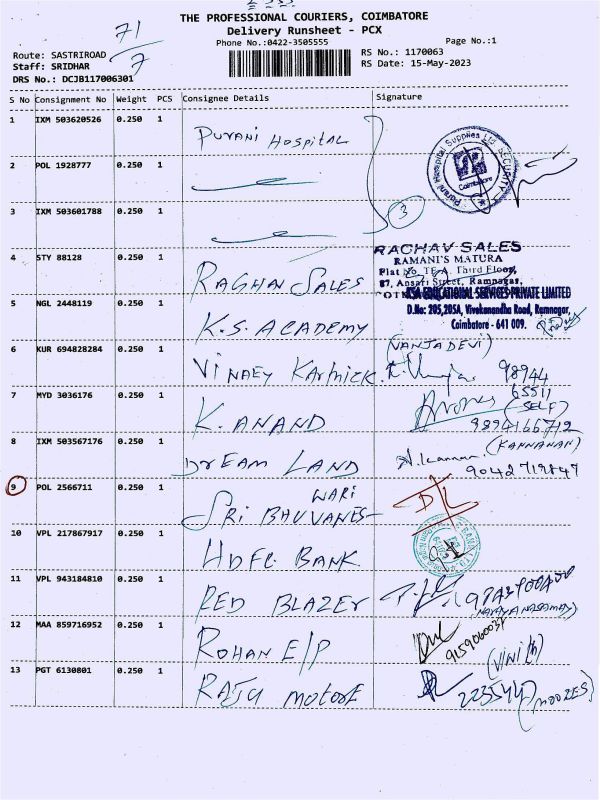 THE PROFESSIONAL COURIERS, COIMBATORE
Delivery Runsheet - PCX
Phone No.:0422-3505555
Page No.:1
71/7
Route: SASTRIROAD
Staff: SRIDHAR
DRS No.: DCJB117006301
RS No.: 1170063
RS Date: 15-May-2023
S No Consignment No Weight PCS Consignee Details Signature
1 IXM 503620526 0.250 1 Purani Hospital
2 POL 1928777 0.250 1
Purani Hospital Supplies Ltd SECURITY
Coimbatore
3 IXM 503601788 0.250 1
3
4 STY 88128 0.250 1 RAGHAV SALES
RAGHAV SALES
RAMANI'S MATURA
Third Floor,
87, Ansari Street, Ramnagar,
5 NGL 2448119 0.250 1 K.S. ACADEMY
KSA EDUCATIONAL SERVICES PRIVATE LIMITED
D.No: 205,205A, Vivekanandha Road, Ramnagar,
Coimbatore - 641 009.
6 KUR 694828284 0.250 1 VINAEY KARTHICK
(NANJADEVI)
98944
65511
7 MYD 3036176 0.250 1 K. ANAND
(SELF)
9894166712
8 IXM 503567176 0.250 1 DREAM LAND
(KANNANAN)
9042719847
9 POL 2566711 0.250 1 SRI BHUVANES-
WARI
DL
10 VPL 217867917 0.250 1 HDFC BANK
11 VPL 943184810 0.250 1 RED BLAZER
(NARAYANASAMAY)
12 MAA 859716952 0.250 1 ROHAN E/P
9159060037
(VINITH)
13 PGT 6130801 0.250 1 RAJU MOTORE
223544